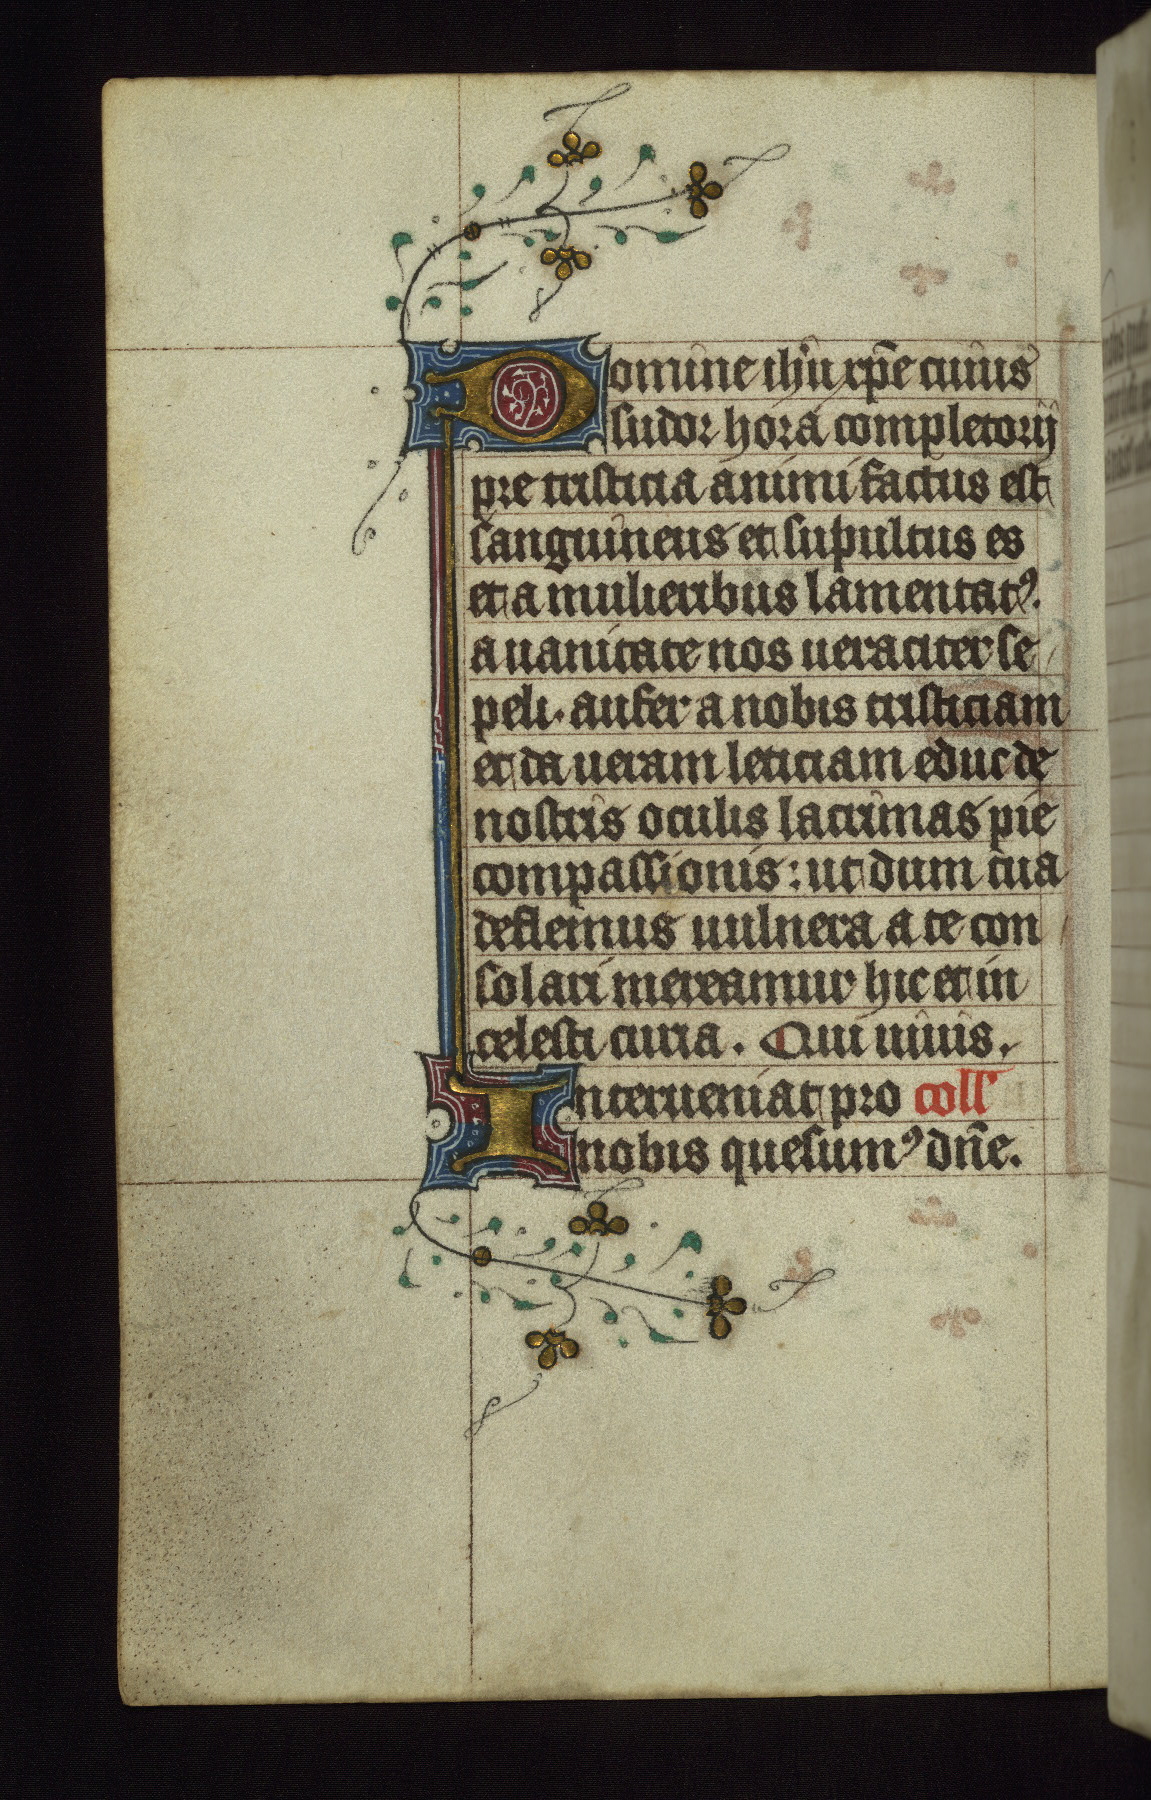 Domine ih'u xp̄e cuius
sudor hora completorij
pre tristicia animi factus est
sanguineus et supultus es
et a mulieribus lamentatꝰ.
a uanitate nos ueraciter se
peli. aufer a nobis tristiciam
et da ueram leticiam educ de
nostris oculis lacrimas pie
compassionis: ut dum tua
deflemus uulnera a te con
solari mereamur hic et in
celesti curia. Qui uiuis.
Interueniat pro coll'
nobis quesumꝰ dn̄e.